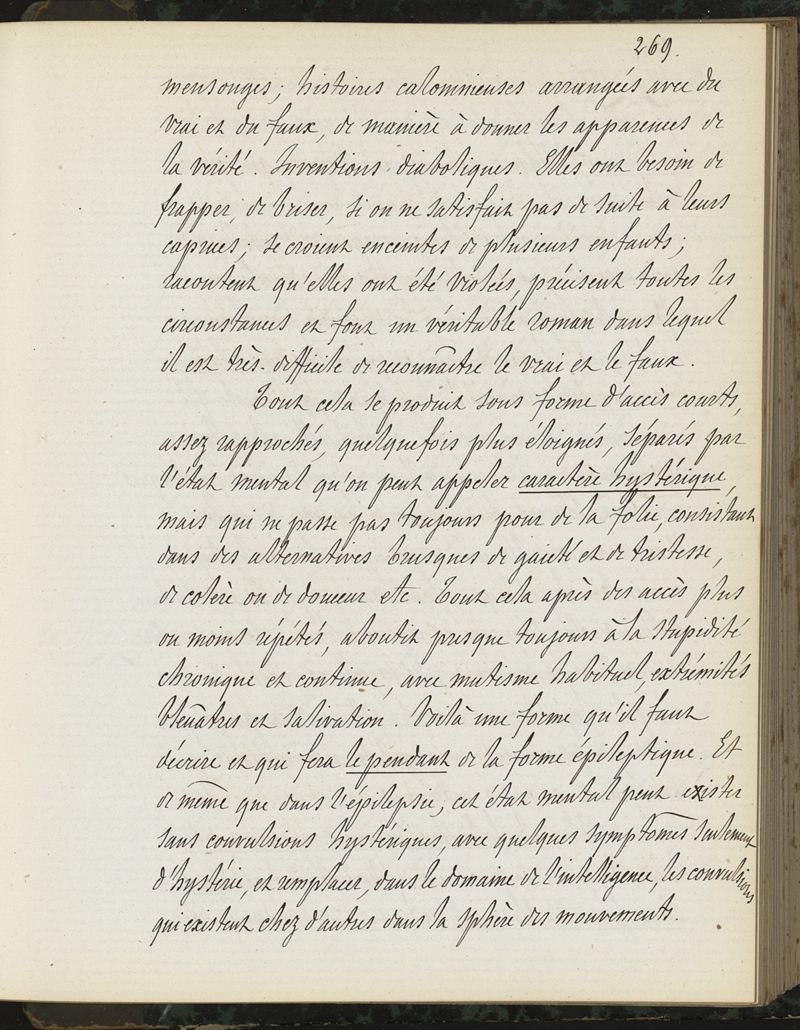 269.
mensonges; histoires calomnieuses arrangées avec du
vrai et du faux, de manière à donner les apparences de
la vérité. Inventions diaboliques. Elles ont besoin de
frapper, de briser, si on ne satisfait pas de suite à leurs
caprices; se croient enceintes de plusieurs enfants;
racontent qu'elles ont été violées, précisent toutes les
circonstances et font un véritable roman dans lequel
il est très-difficile de reconnaître le vrai et le faux.
Tout cela se produit sous forme d'accès courts,
assez rapprochés, quelquefois plus éloignés, séparés par
l'état mental qu'on peut appeler caractère hystérique,
mais qui ne passe pas toujours pour de la folie, consistant
dans des alternatives brusques de gaieté et de tristesse,
de colère ou de douceur etc. Tout cela après des accès plus
ou moins répétés, aboutit presque toujours à la stupidité
chronique et continue, avec mutisme habituel, extrémités
bleuâtres et salivation. Voilà une forme qu'il faut
décrire et qui fera le pendant de la forme épileptique. Et
de même que dans l'épilepsie, cet état mental peut exister
sans convulsions hystériques, avec quelques symptômes seulement
d'hystérie, et remplacer, dans le domaine de l'intelligence, les convulsions
qui existent chez d'autres dans la sphère des mouvements.